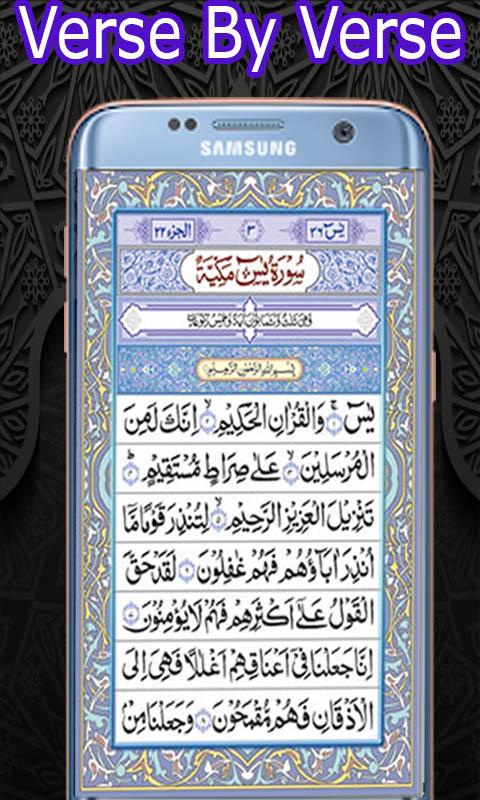 Verse By Verse
SAMSUNG
الجزء ٢٢ ٣ يٰسٓ ٣٦
سُوْرَةُ يٰسٓ مَكِّيَّةٌ
بِسْمِ اللّٰهِ الرَّحْمٰنِ الرَّحِيْمِ
يٰسٓ ۚ ۝١ وَالْقُرْاٰنِ الْحَكِيْمِ ۝٢ اِنَّكَ لَمِنَ
الْمُرْسَلِيْنَ ۝٣ عَلٰى صِرَاطٍ مُّسْتَقِيْمٍ ۝٤ ؕ
تَنْزِيْلَ الْعَزِيْزِ الرَّحِيْمِ ۝٥ لِتُنْذِرَ قَوْمًا مَّا
اُنْذِرَ اٰبَآؤُهُمْ فَهُمْ غٰفِلُوْنَ ۝٦ لَقَدْ حَقَّ
الْقَوْلُ عَلٰٓى اَكْثَرِهِمْ فَهُمْ لَا يُؤْمِنُوْنَ ۝٧
اِنَّا جَعَلْنَا فِىْٓ اَعْنَاقِهِمْ اَغْلٰلًا فَهِىَ اِلَى
الْاَذْقَانِ فَهُمْ مُّقْمَحُوْنَ ۝٨ وَجَعَلْنَا مِنْۢ